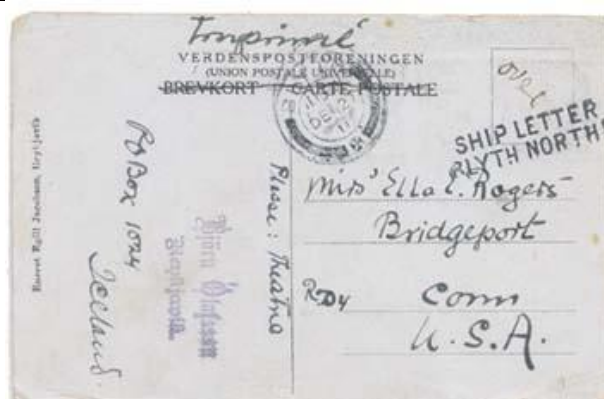 Imprimé
VERDENSPOSTFORENINGEN
(UNION POSTALE UNIVERSELLE)
BREVKORT - CARTE POSTALE
over
SHIP LETTER
BLYTH NORTH
Miss Ella E. Rogers
Bridgeport
Conn
U.S.A.
Please:
Björn
Reykjavik
PO Box 1024
Iceland.
Eneret Egill Jacobsen, Reykjavik